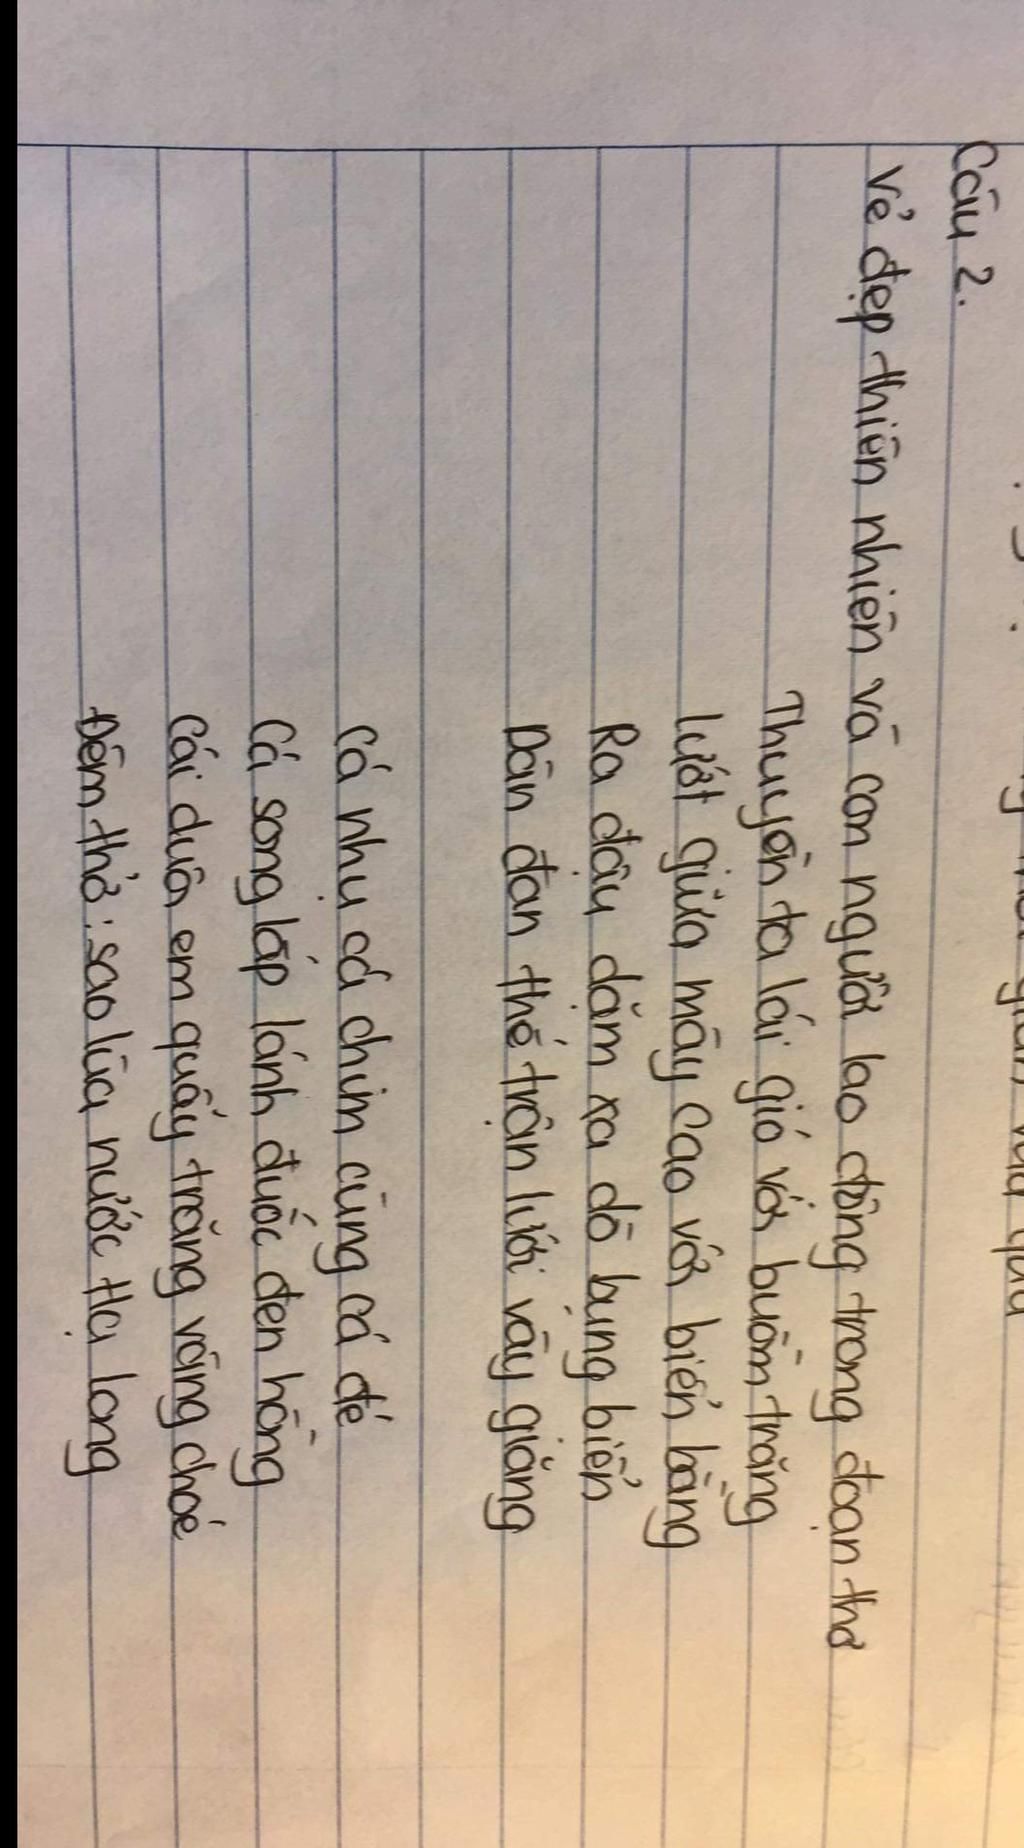 Câu 2.
Vẻ đẹp thiên nhiên và con người lao động trong đoạn thơ
Thuyền ta lái gió với buồm trăng
Lướt giữa mây cao với biển bằng
Ra đậu dặm xa dò bụng biển
Dàn đan thế trận lưới vây giăng
Cá nhụ cá chim cùng cá đé
Cá song lấp lánh đuốc đen hồng
Cái đuôi em quẫy trăng vàng choé
Đêm thở: sao lùa nước Hạ Long